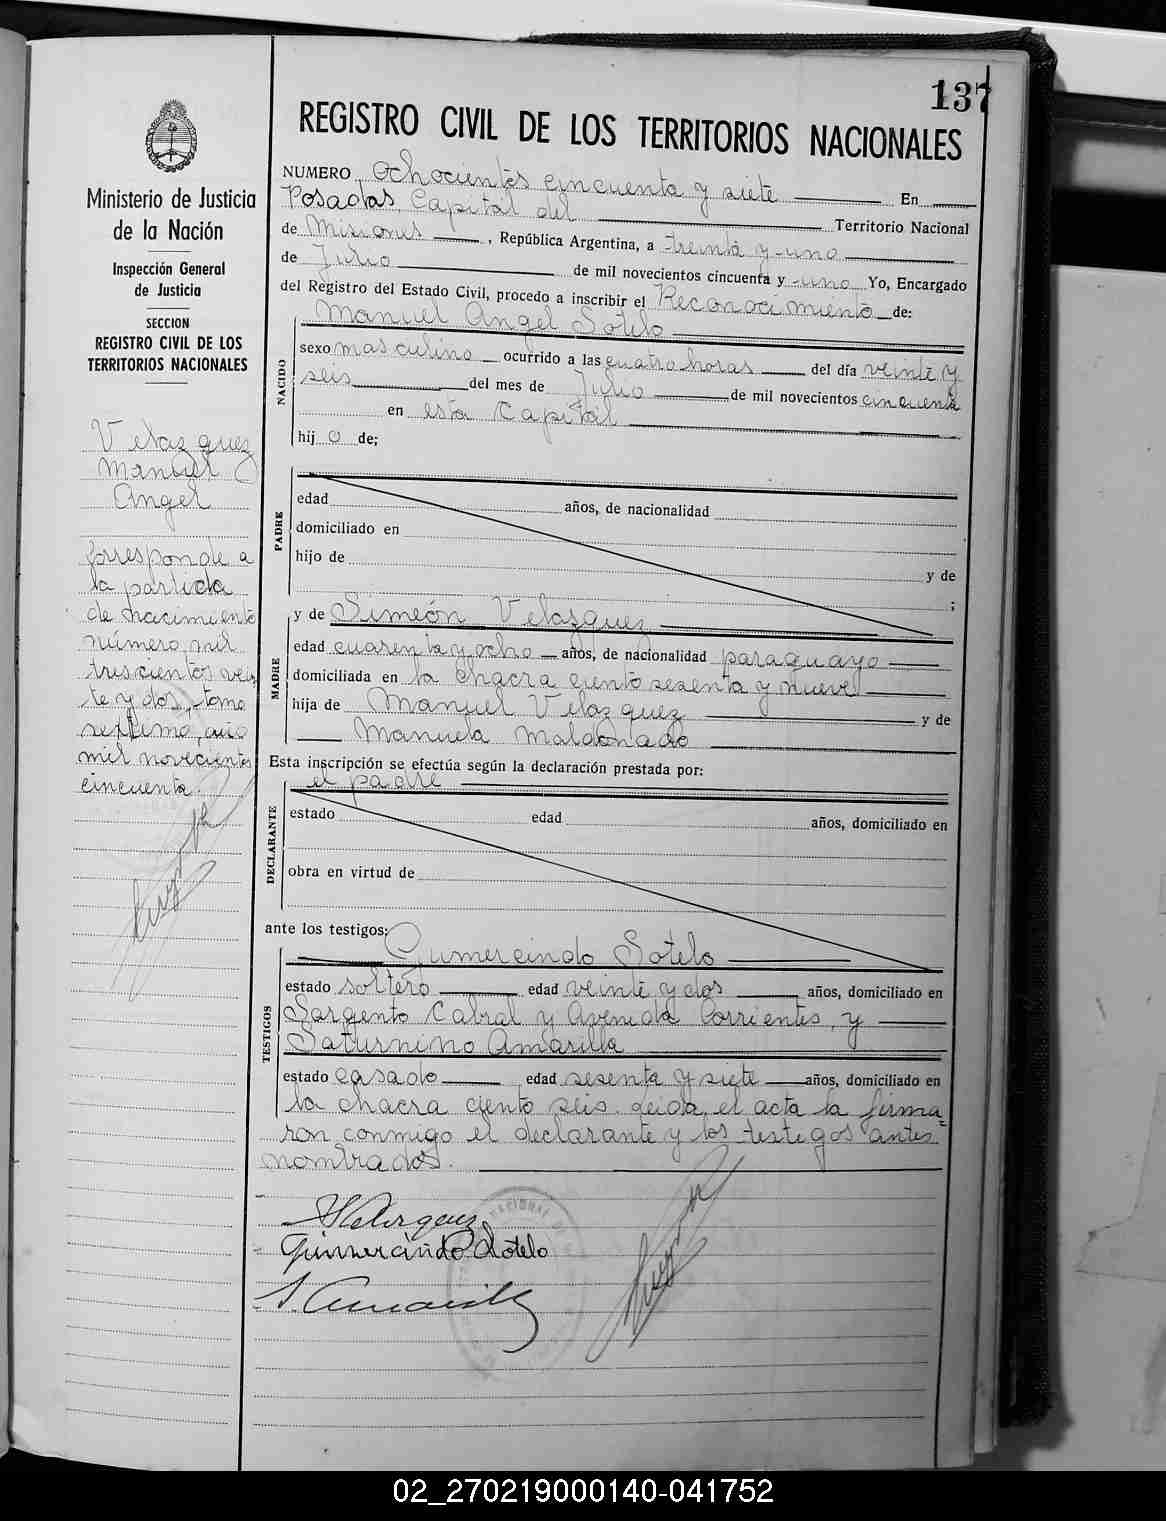 137
REGISTRO CIVIL DE LOS TERRITORIOS NACIONALES
NUMERO Ochocientos cincuenta y siete En
Posadas, Capital del Territorio Nacional
de Misiones, República Argentina, a treinta y uno
de Julio de mil novecientos cincuenta y uno Yo, Encargado
del Registro del Estado Civil, procedo a inscribir el Reconocimiento de:
Manuel Angel Sotelo
NACIDO
sexo masculino ocurrido a las cuatro horas del día veinte y
seis del mes de Julio de mil novecientos cincuenta
en esta Capital
hij o de;
PADRE
edad años, de nacionalidad
domiciliado en
hijo de y de
;
y de Simeón Velazquez
MADRE
edad cuarenta y ocho años, de nacionalidad paraguayo
domiciliada en la chacra ciento sesenta y nueve
hija de Manuel Velazquez y de
Manuela Maldonado
Esta inscripción se efectúa según la declaración prestada por:
el padre
DECLARANTE
estado edad años, domiciliado en
obra en virtud de
ante los testigos:
Gumercindo Sotelo
TESTIGOS
estado soltero edad veinte y dos años, domiciliado en
Sargento Cabral y Avenida Corrientes, y
Saturnino Amarilla
estado casado edad sesenta y siete años, domiciliado en
la chacra ciento seis. Leida el acta la firma=
ron conmigo el declarante y los testigos antes
nombrados.
SVelazquez
Gumercindo Sotelo
S. Amarilla
Ministerio de Justicia
de la Nación
Inspección General
de Justicia
SECCION
REGISTRO CIVIL DE LOS
TERRITORIOS NACIONALES
Velazquez
Manuel
Angel
Corresponde a
la partida
de nacimiento
número mil
trescientos vein
te y dos, tomo
septimo, año
mil novecientos
cincuenta.
02_270219000140-041752